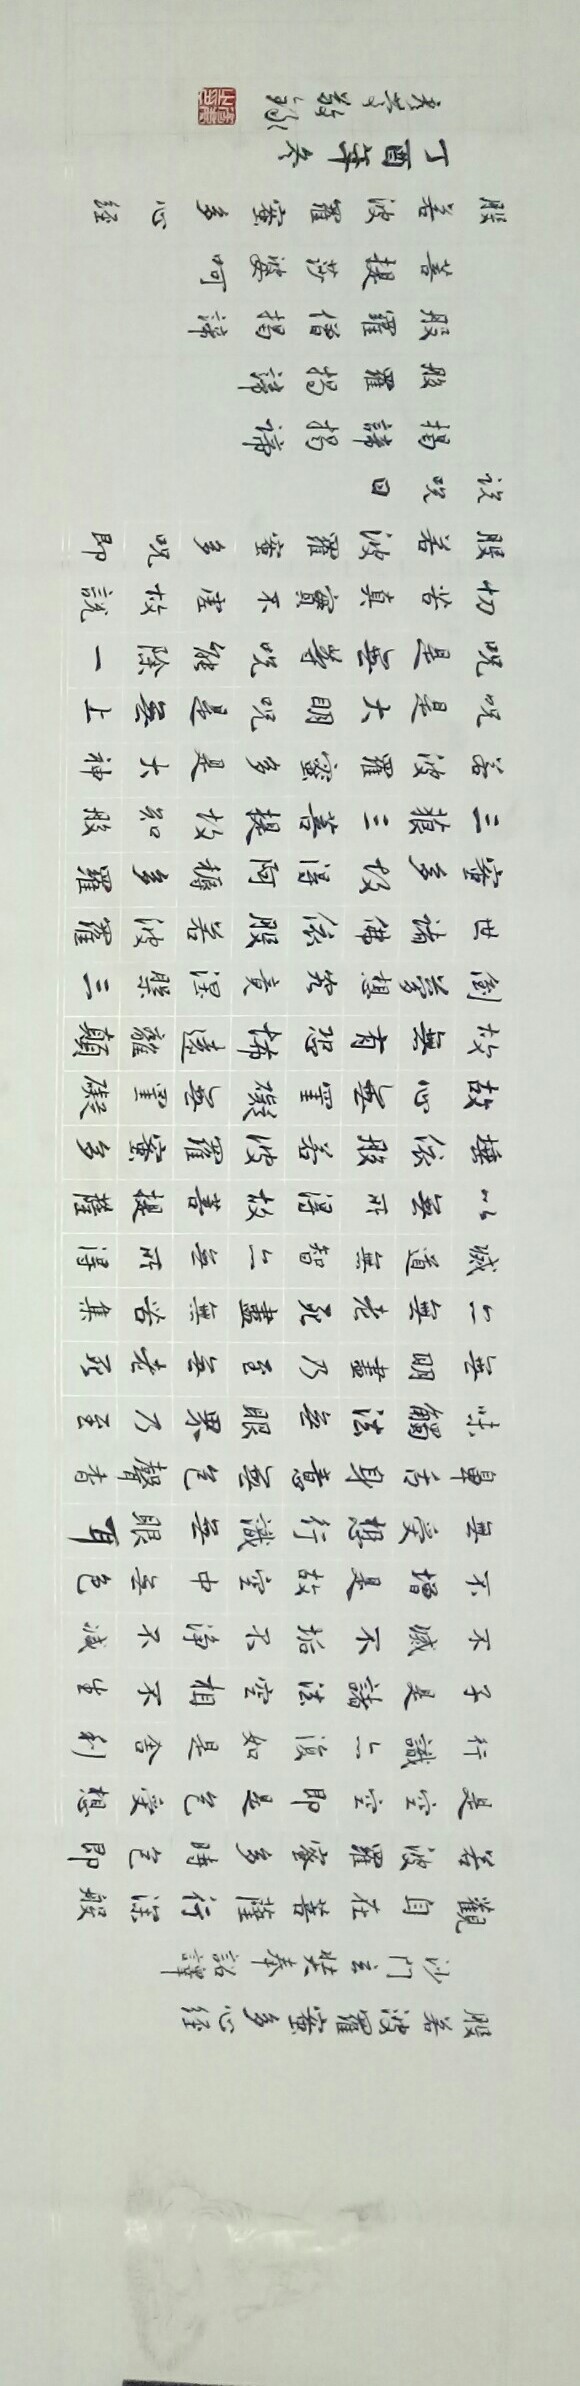 般若波羅蜜多心經
沙门玄奘奉詔譯
觀自在菩薩行深般
若波羅蜜多時色即
是空空即是色受想
行識亦復如是舍利
子是諸法空相不生
不滅不垢不淨不減
不增是故空中無色
無受想行識無眼耳
鼻舌身意無色聲香
味觸法無眼界乃至
無明盡乃至無老死
亦無老死盡無苦集
滅道無智亦無所得
以無所得故菩提薩
埵依般若波羅蜜多
故心無罣礙無罣礙
故無有恐怖遠離顛
倒夢想究竟涅槃三
世諸佛依般若波羅
蜜多故得阿耨多羅
三藐三菩提故知般
若波羅蜜多是大神
咒是大明咒是無上
咒是無等咒能除一
切苦真實不虛故說
般若波羅蜜多咒即
说咒曰
揭諦揭谛
般羅揭諦
般羅僧揭諦
菩提莎婆呵
般若波羅蜜多心經
丁酉年冬
敬錄